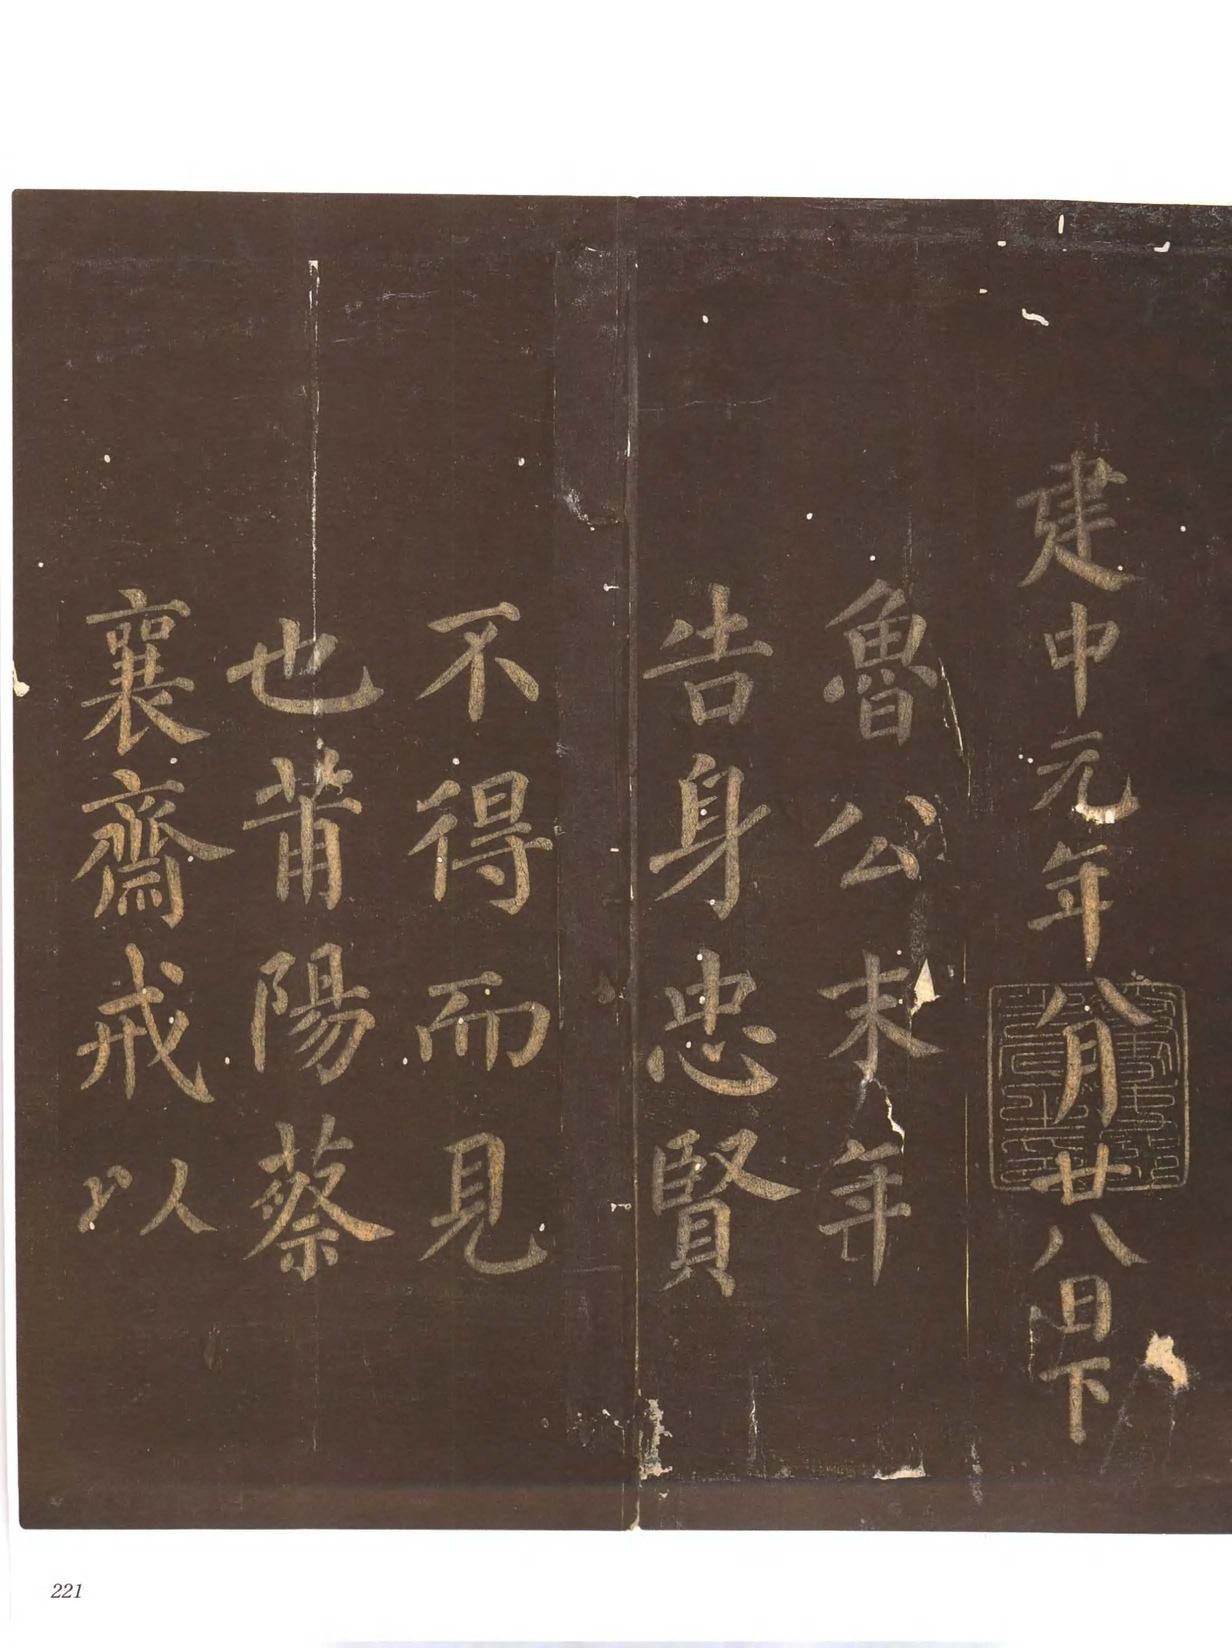 建中元年八月廿八日下
魯公末年
告身忠賢
不得而見
也莆陽蔡
襄齋戒以
221